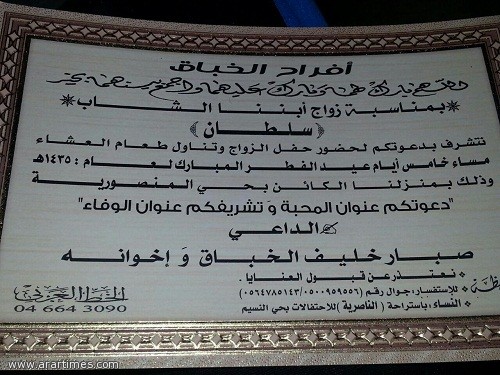 أفراح الخباق
اللهم بارك لهما وبارك عليهما واجمع بينهما بخير
بمناسبة زواج أبننا الشاب
(سلطان)
نتشرف بدعوتكم لحضور حفل الزواج وتناول طعام العشاء
مساء خامس أيام عيد الفطر المبارك لعام : ١٤٣٥هـ
وذلك بمنزلنا الكائن بحي المنصورية
"دعوتكم عنوان المحبة و تشريفكم عنوان الوفاء"
الداعي
صبار خليف الخباق و إخوانه
نعتذر عن قبول العنايا .
للإستفسار، جوال رقم (٠٥٠٠٩٥٩٥٥٦/٠٥٦٤٧٨٥١٤٣)
النساء، بأستراحة (الناصرية) للاحتفالات بحي النسيم
04 664 3090
www.arartimes.com